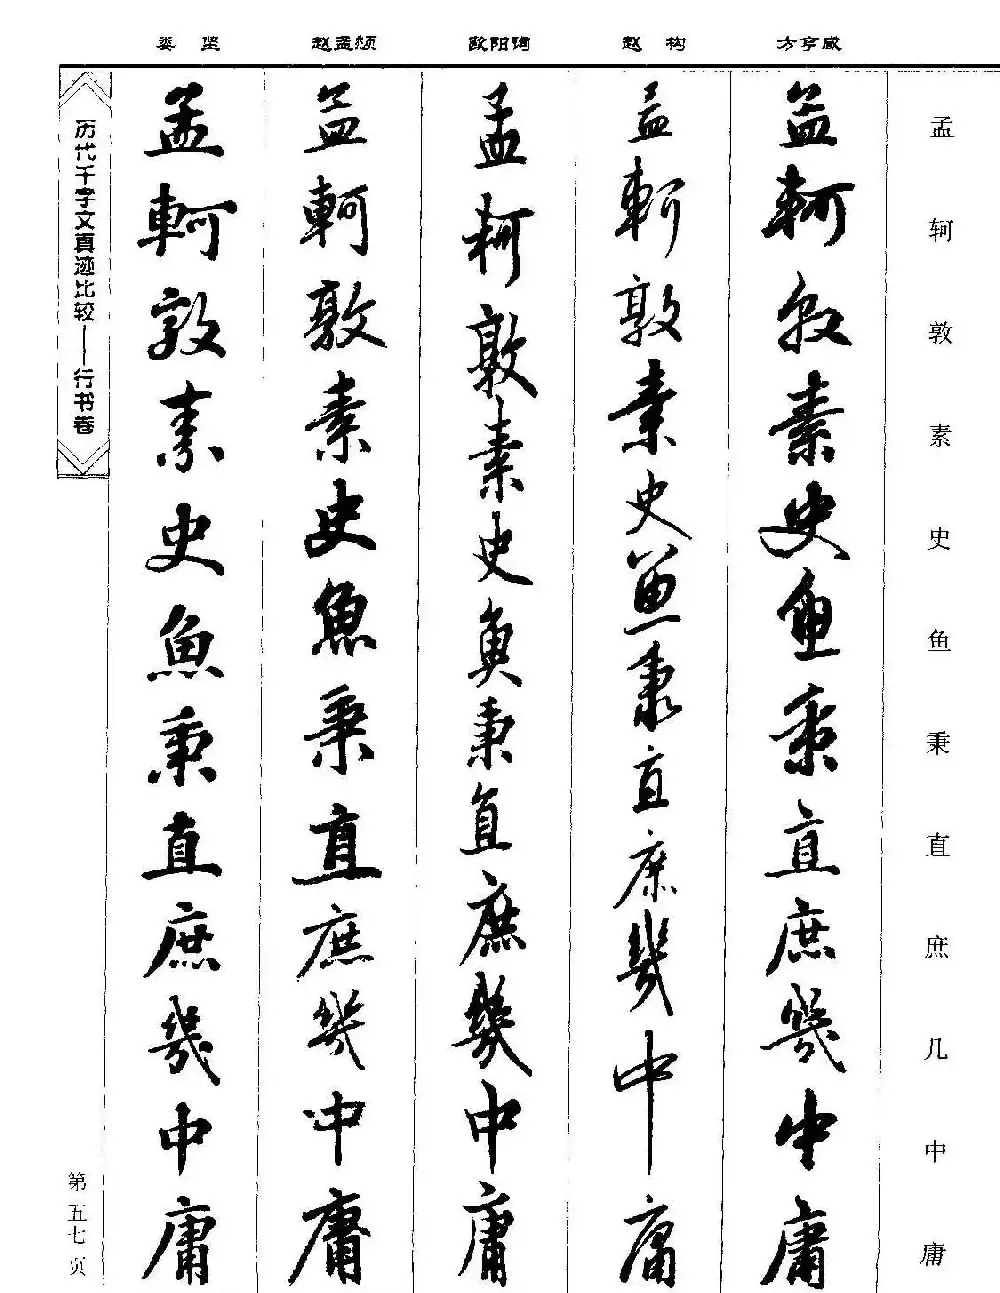 娄坚 赵孟頫 欧阳询 赵构 方亨咸
孟轲敦素史鱼秉直庶几中庸
孟軻敦素史魚秉直庶幾中庸
孟軻敦素史魚秉直庶幾中庸
孟軻敦素史魚秉直庶幾中庸
孟軻敦素史魚秉直庶幾中庸
孟軻敦素史魚秉直庶幾中庸
历代千字文真迹比较——行书卷
第五七页